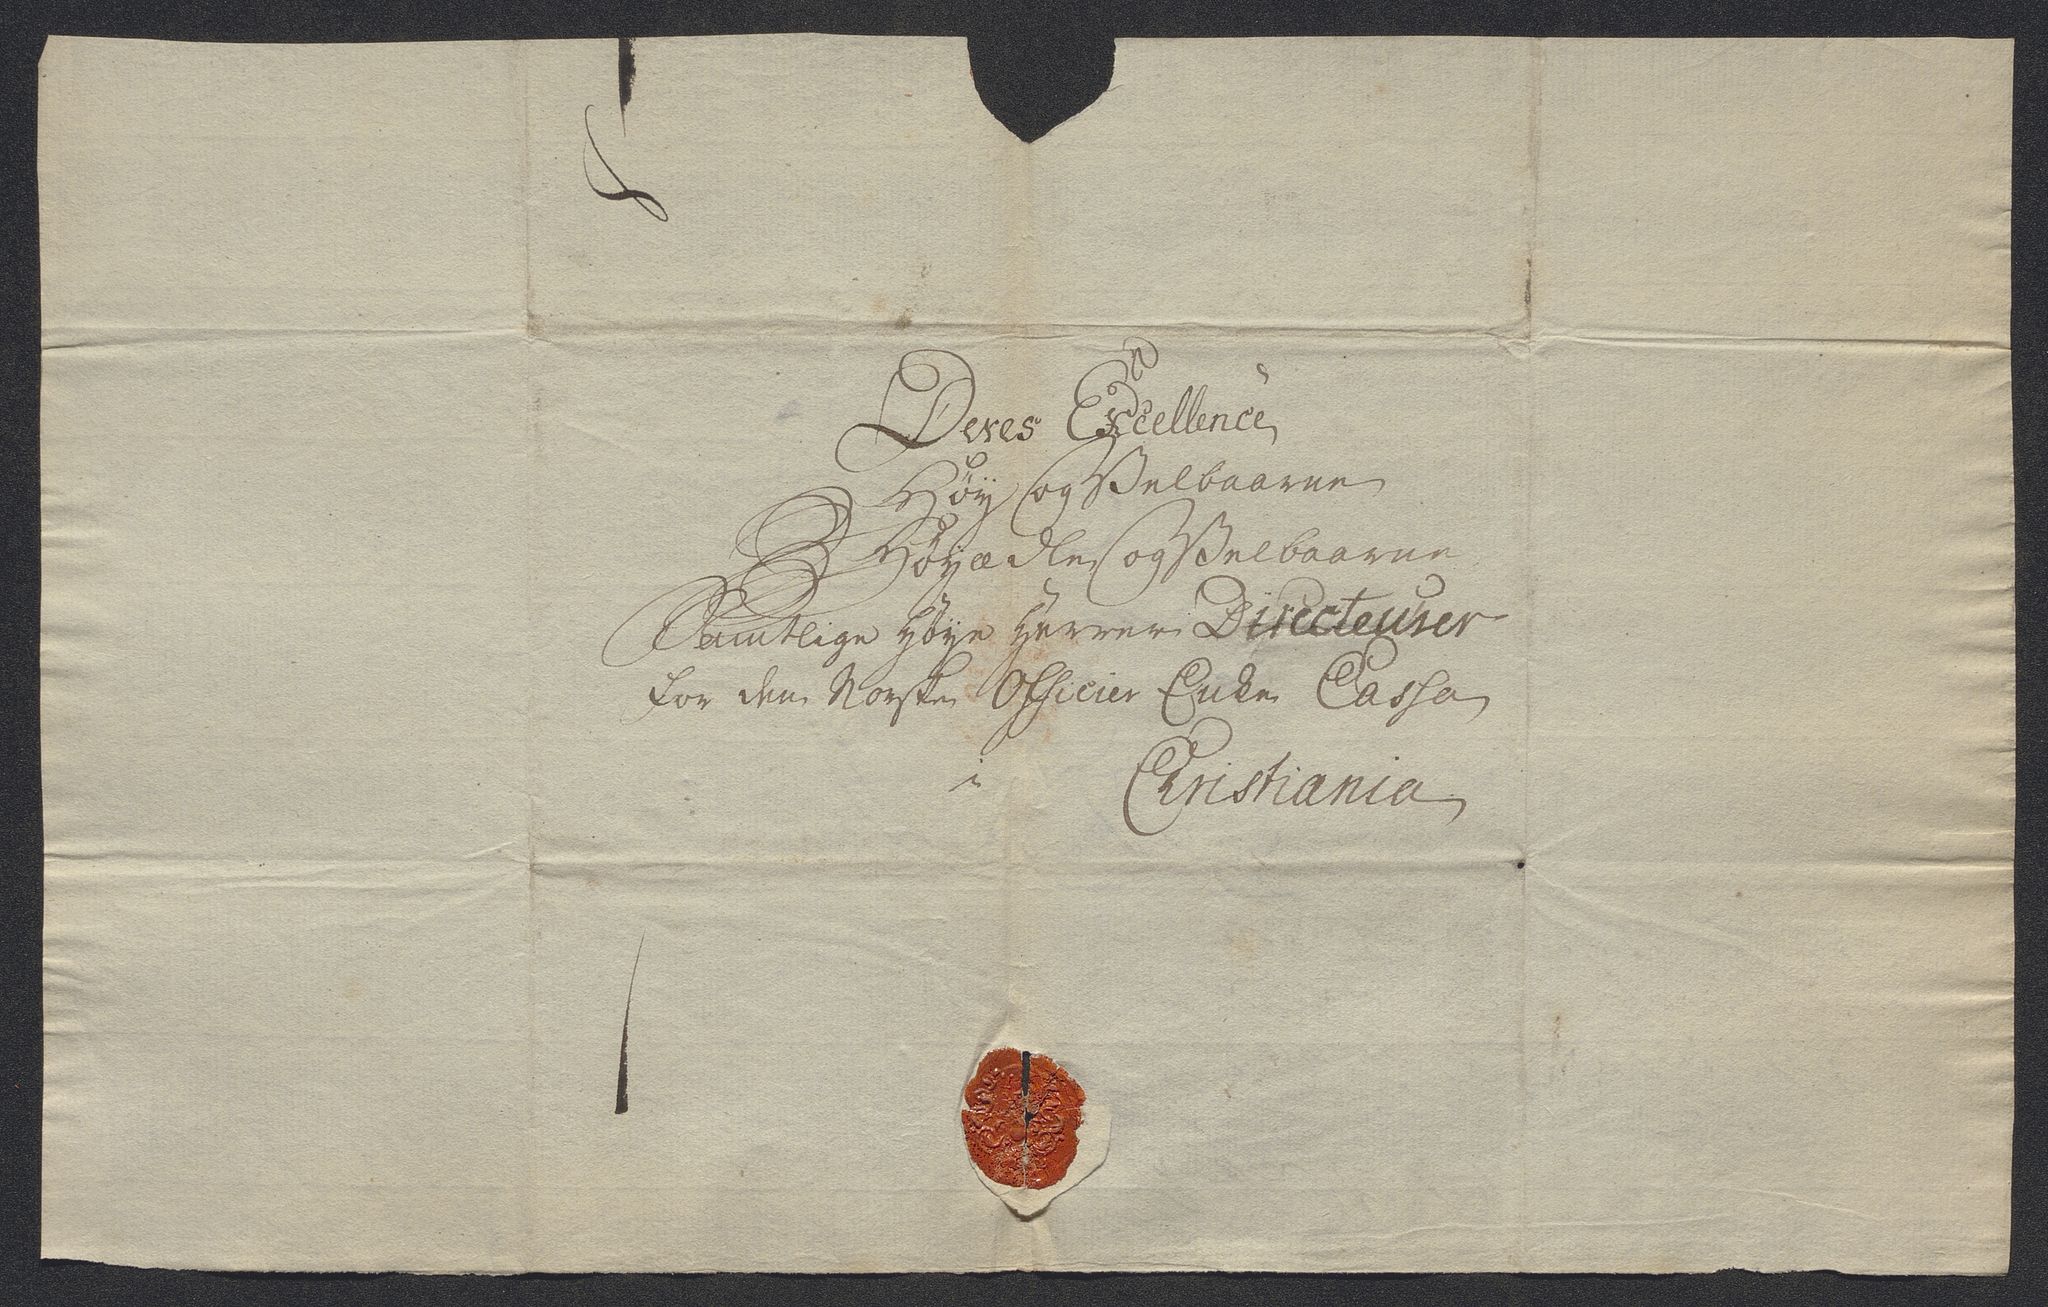 Deres Excellence
Høy og Velbaarne
Høyædle og Velbaarne
Samtlige Høye Herrer Directeurer
for den Norske Officier Enke Cassa
i Christiania